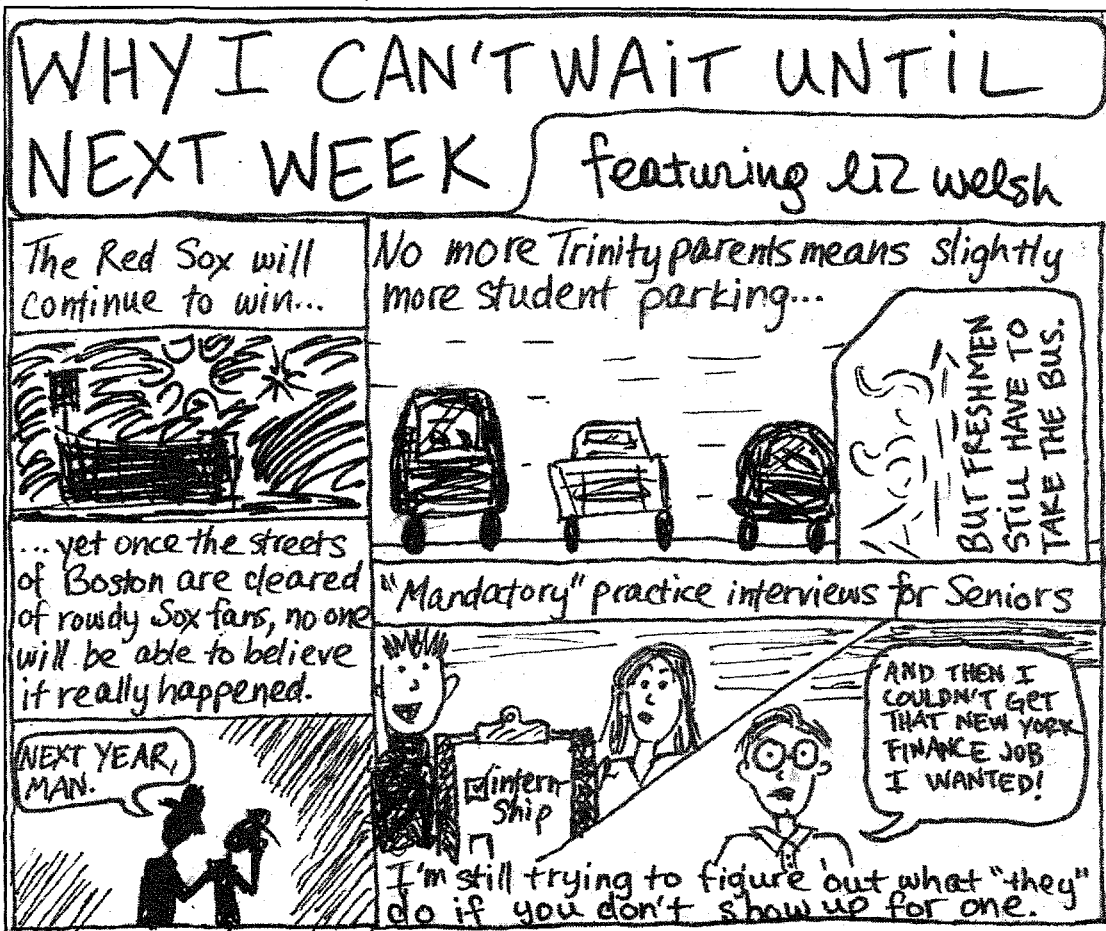 WHY I CAN'T WAIT UNTIL
NEXT WEEK
featuring liz welsh
The Red Sox will
continue to win...
...yet once the streets
of Boston are cleared
of rowdy Sox fans, no one
will be able to believe
it really happened.
NEXT YEAR,
MAN.
No more Trinity parents means slightly
more student parking...
BUT FRESHMEN
STILL HAVE TO
TAKE THE BUS.
"Mandatory" practice interviews for Seniors
intern-
ship
AND THEN I
COULDN'T GET
THAT NEW YORK
FINANCE JOB
I WANTED!
I'm still trying to figure out what "they"
do if you don't show up for one.